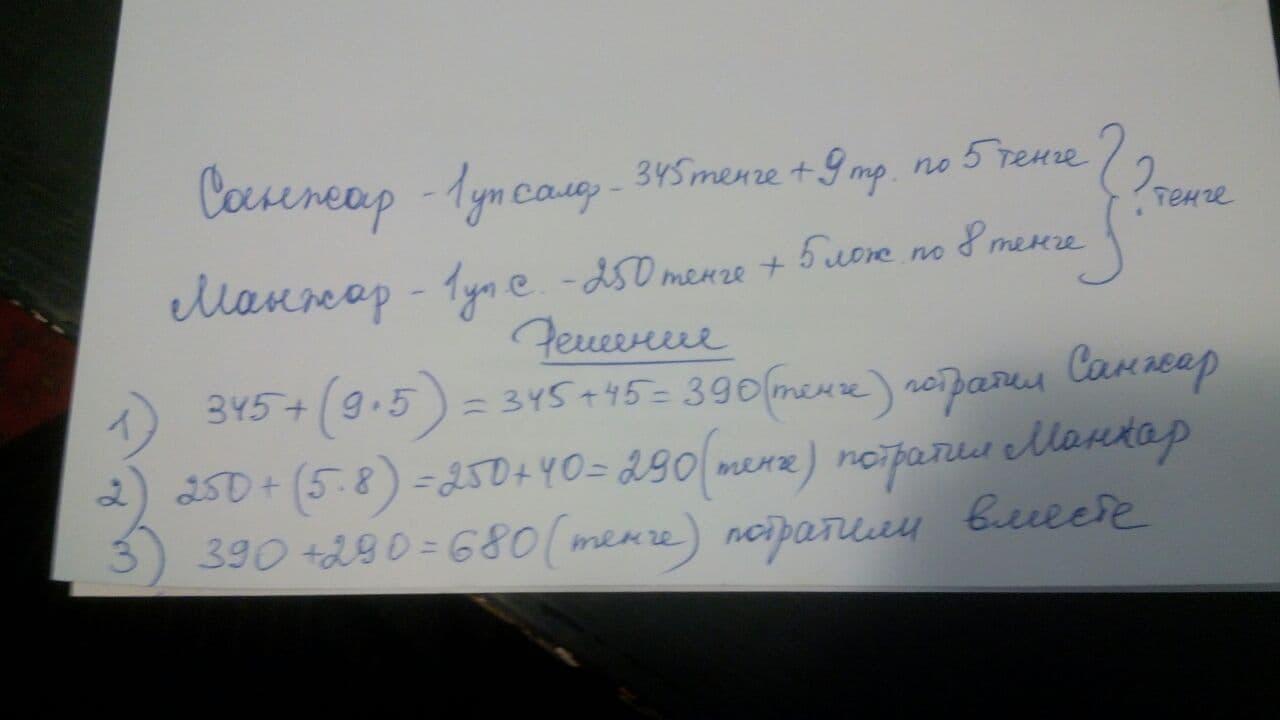 Санжар - 1 уп салф - 345 тенге + 9 тр. по 5 тенге
? тенге
Манжар - 1 уп с. - 250 тенге + 5 лож. по 8 тенге
Решение
1) 345 + (9 · 5) = 345 + 45 = 390 (тенге) потратил Санжар
2) 250 + (5 · 8) = 250 + 40 = 290 (тенге) потратил Манжар
3) 390 + 290 = 680 (тенге) потратили вместе